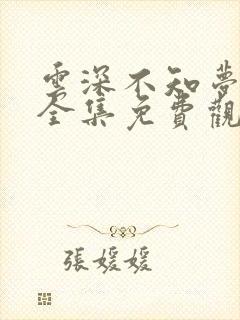 雲深不知夢
全集免費觀
張媛媛